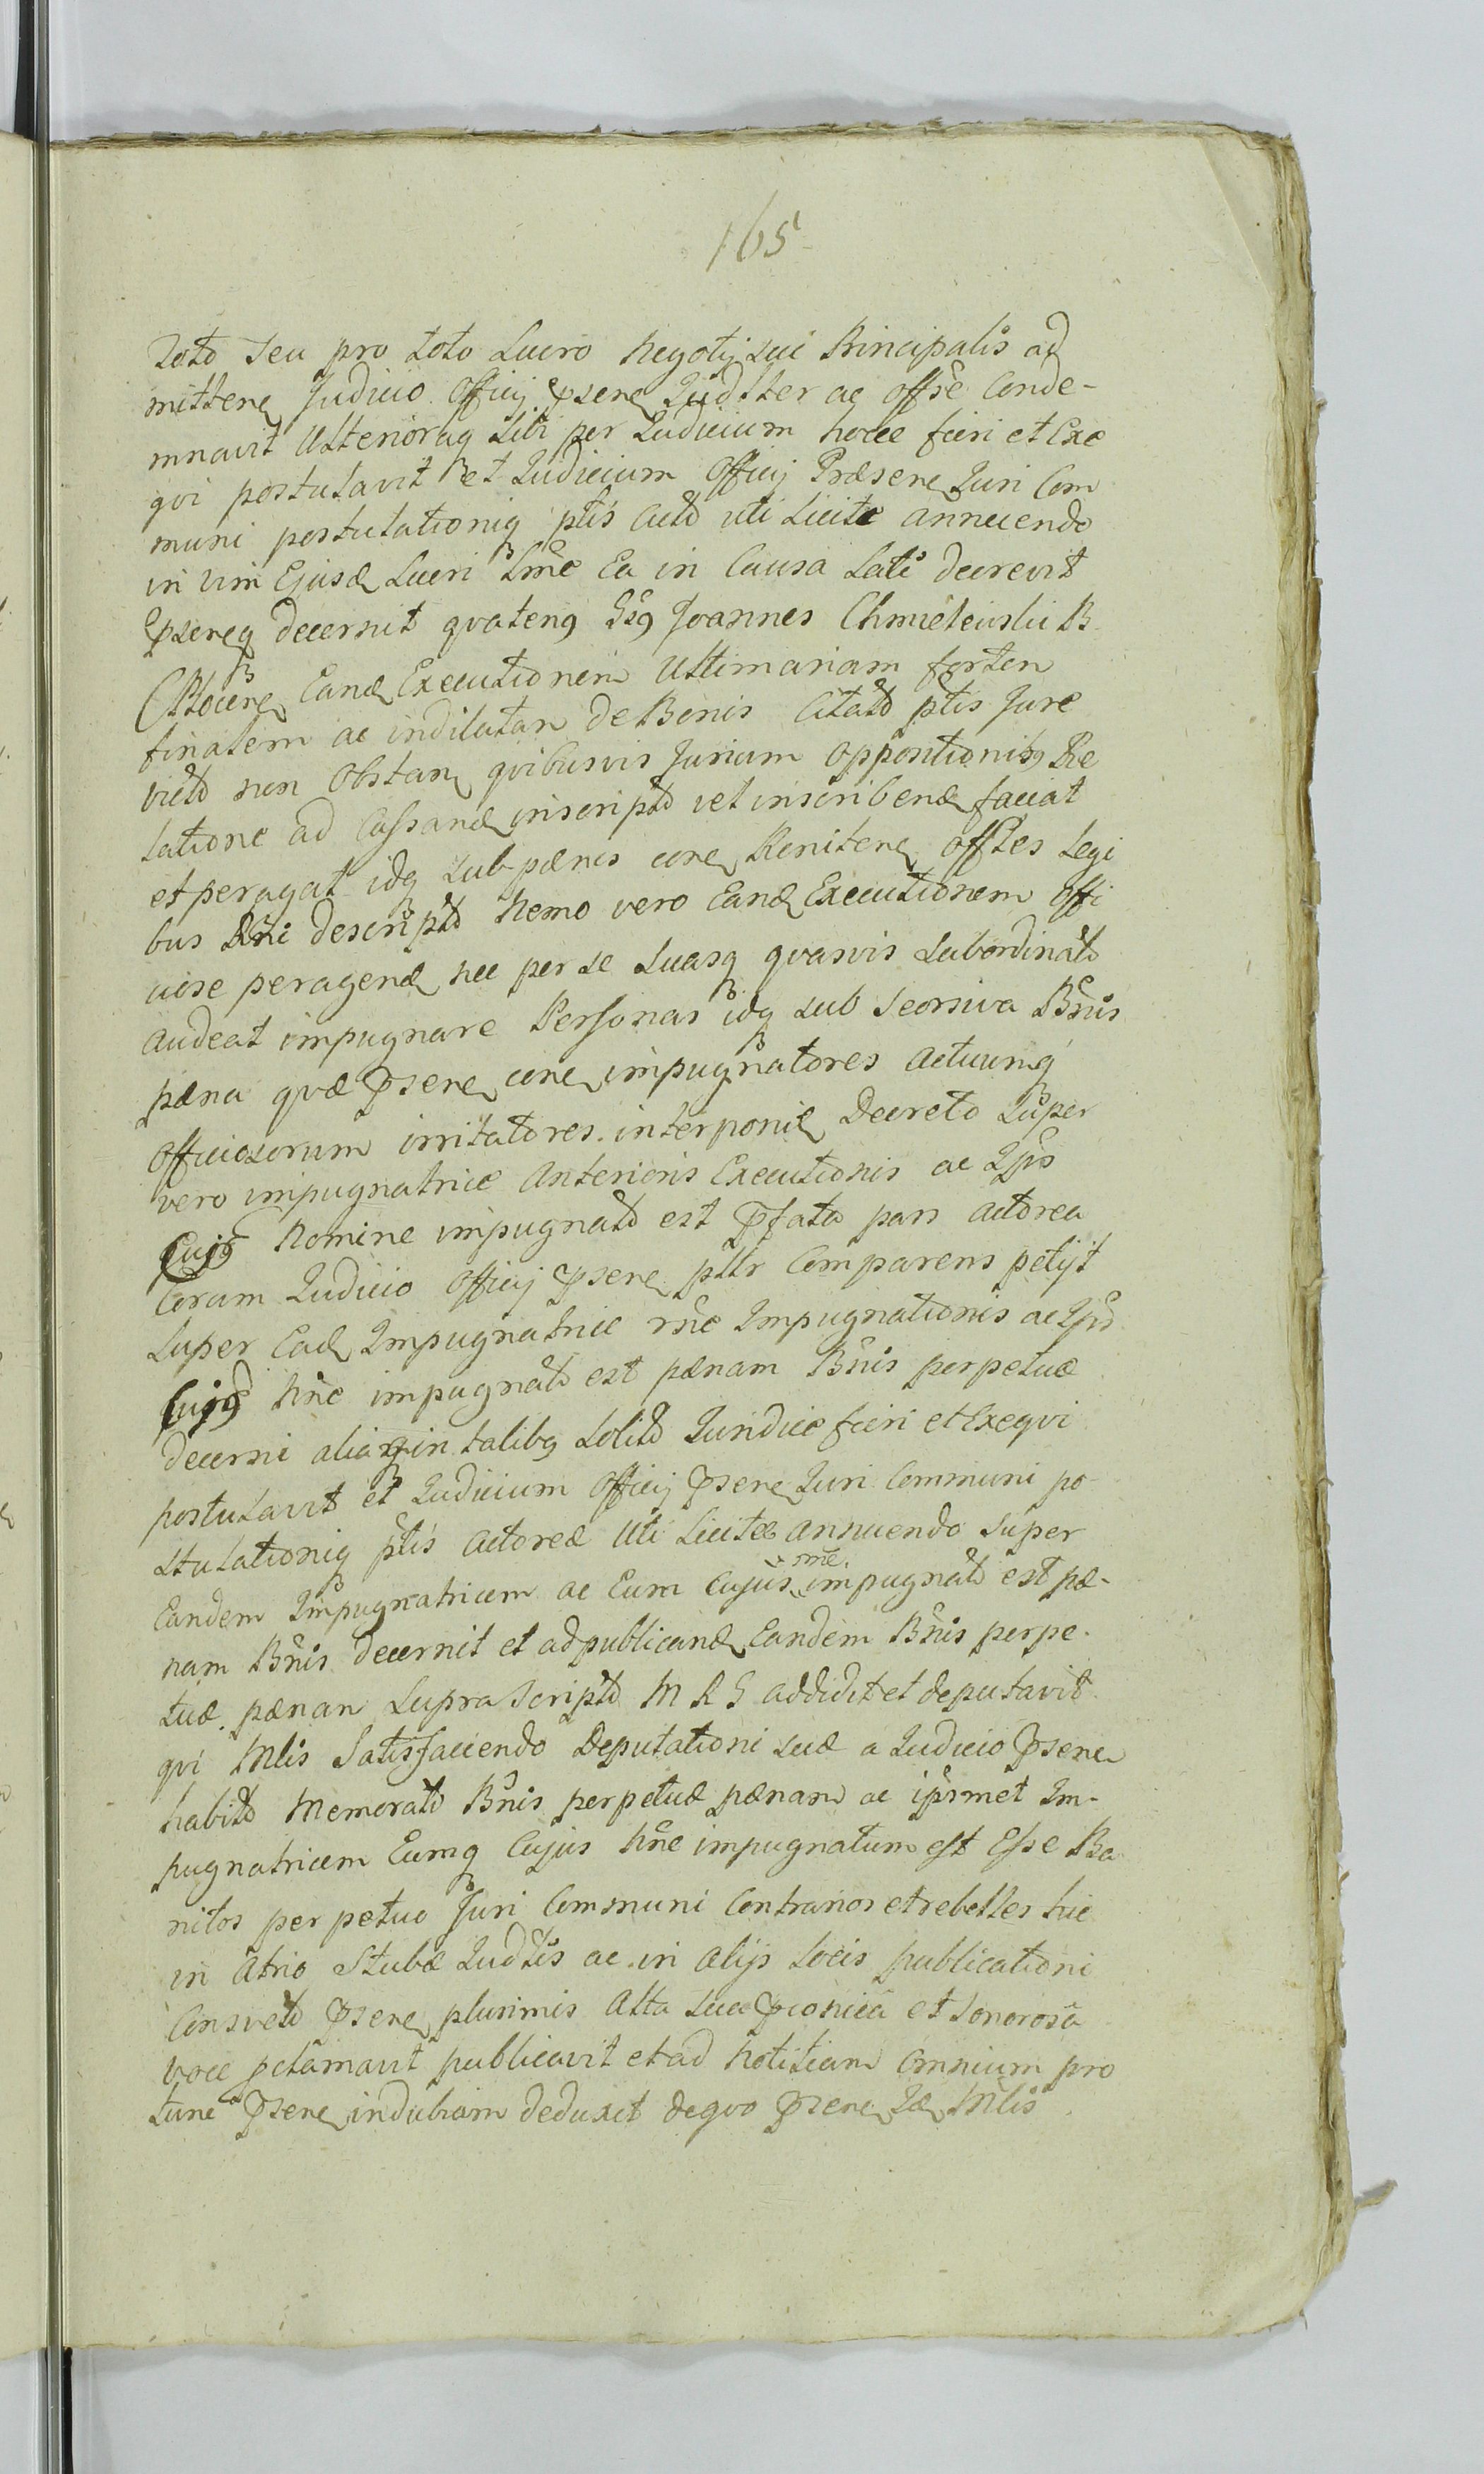 165
Toto Seu pro toto Lucro Negotij sui Principalis ad
mitten Judicio Officij psen Judlter ac offse Conde-
mnavit Ulterioraq Sibi per Judicium hocce fieri et Exe
qvi postulavit et Judicium Officij Præsen Juri Com
muni postulationiq ptis uti Licite annuendo
in vim Ejusd Lucri Ea in Causa Lati decrevit
psenq decernit qvatenq Joannes Chmielewski B
Eand Executionem Ultimariam forten
finalem ac indilatan de Bonis Citato ptis Jure
victo non Obstan qvibusvis Jurium oppositionibq Re
latione ad Cassand inscripto vel inscribend faciat
et peragat idq sub pænis con Reniten offles Legi
bus Rni descripto Nemo vero Eand Executionem offi
ciose peragend nec per se Suasq qvasvis Subordinato
audeat impugnare Personas idq sub Seorsiva Bnis
pæna qvæ psen con impugnatores actuumq
officiosorum irritatores interponit Decreto Super
vero impugnatrice Anterioris Executionis ac
Cujq Nomine impugnato est pfata pars actorea
Coram Judicio Officij psen pltr Comparens petijt
Super Ead Impugnatrice rne Impugnationis ac
Cujq Nne impugnato est pænam Bnis perpetuæ
decerni aliaq in talibq Solito Juridice fieri et Exeqvi
postulavit et Judicium Officij psen Juri Communi po
stulationiq ptis actoreæ Uti Licitæ annuendo Super
Eandem Impugnatricem ac Eum Cujus nne impugnato est pæ-
nam Bnis decernit et ad publicand Eandem Bnis perpe-
tuæ pænan Supra Scripto M R G addidit et deputavit
qvi Mlis Satisfaciendo Deputationi suæ a Judicio psen
habito Memorato Bnis perpetuæ pænam ac ipsmet Im-
pugnatricem Eumq Cujus Nne impugnatum est Esse Ba
nitos perpetuo Juri Communi Contrarios et rebelles hic
in Atrio Stubæ Judlis ac in alijs Locis publicationi
Consveto psen plurimis Alta sua pconica et Sonorosa
voce pclamavit publicavit et ad Notitiam omnium pro
tunc psen indubiam deduxit deqvo psen Mlis